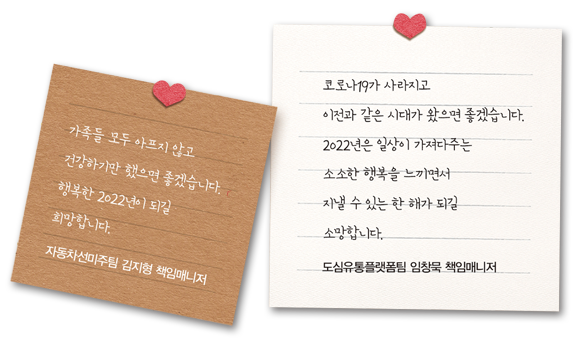 가족들 모두 아프지 않고
건강하기만 했으면 좋겠습니다.
행복한 2022년이 되길
희망합니다.
자동차선미주팀 김지형 책임매니저
코로나19가 사라지고
이전과 같은 시대가 왔으면 좋겠습니다.
2022년은 일상이 가져다주는
소소한 행복을 느끼면서
지낼 수 있는 한 해가 되길
소망합니다.
도심유통플랫폼팀 임창묵 책임매니저